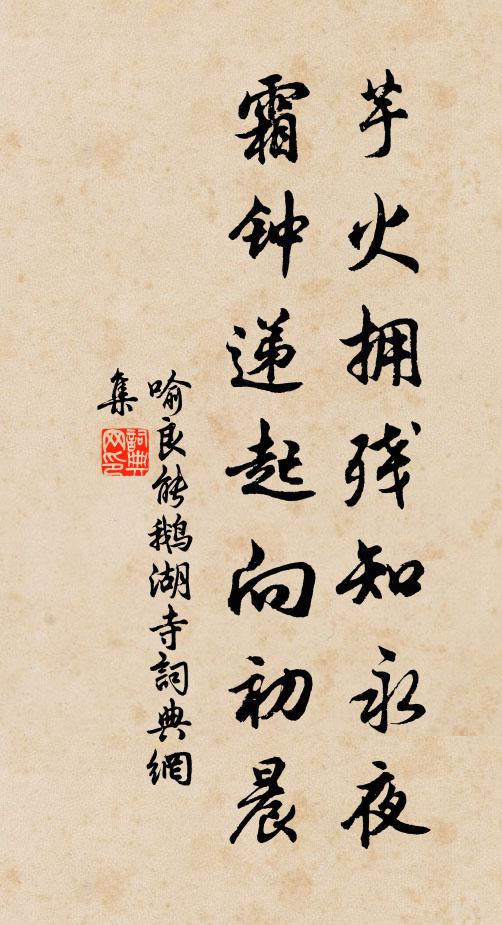 芋火拥残知永夜
霜钟递起向初晨
喻良能鹅湖寺詞典網
集
詞典
网印